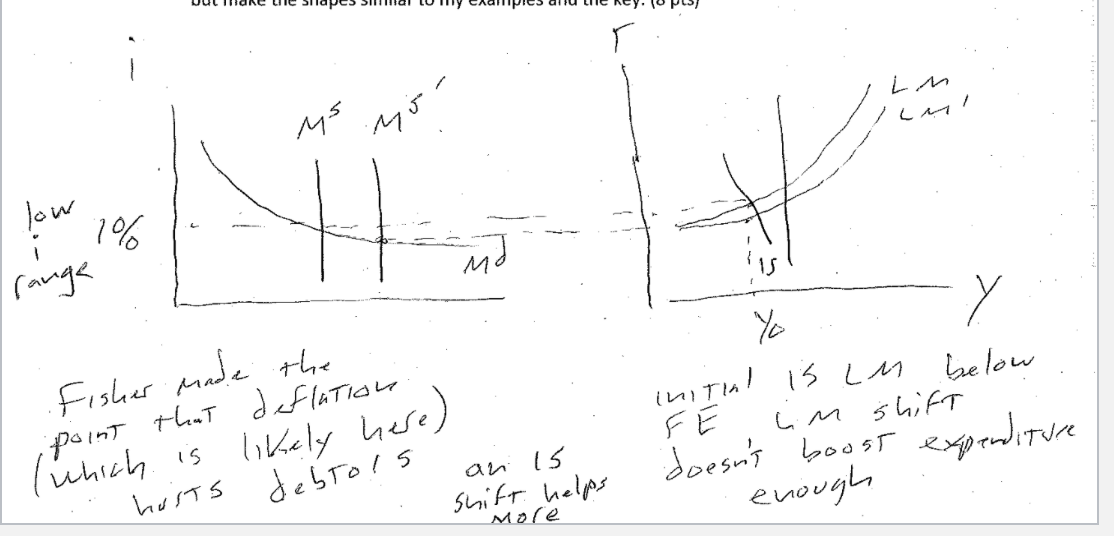 but make the shapes similar to my examples and the key. (8 pts)
i
r
M^s M^s'
LM
LM'
low
i
range
1%
Md
IS
Y
Y0
Fisher made the
point that deflation
(which is likely here)
hurts debtors
an IS
shift helps
more
initial IS LM below
FE LM shift
doesn't boost expenditure
enough